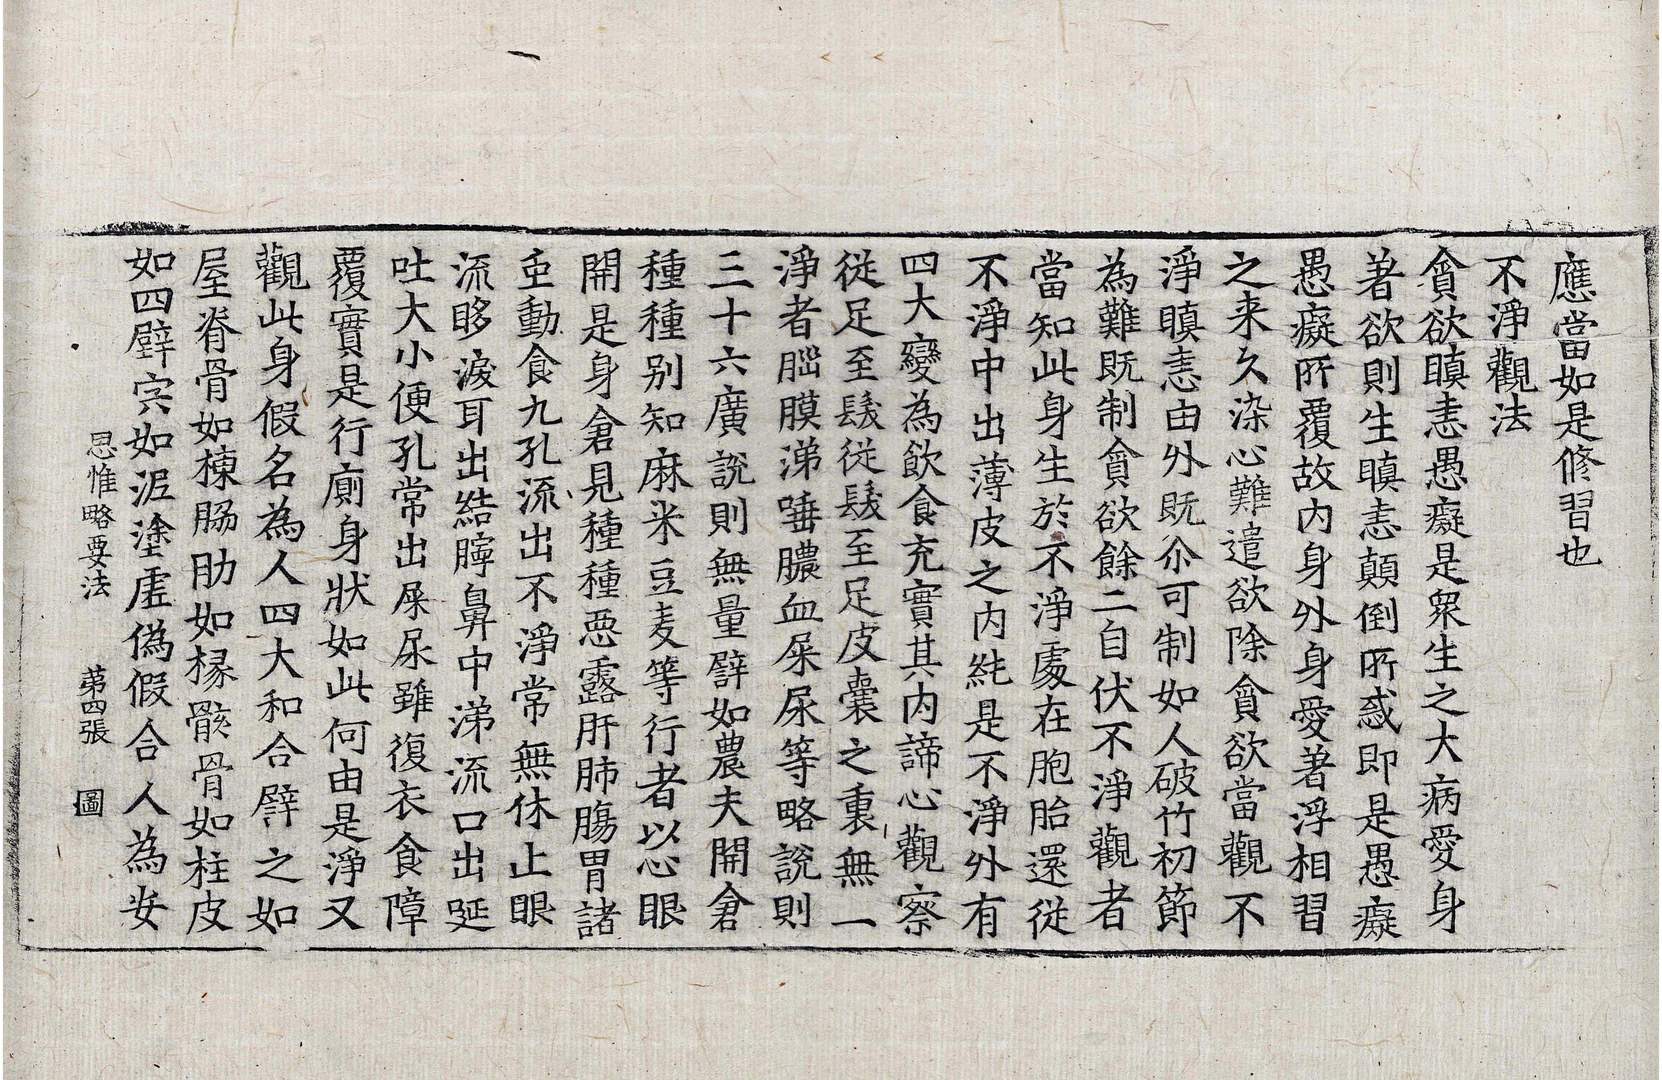 應當如是修習也
不淨觀法
貪欲瞋恚愚癡是衆生之大病愛身
著欲則生瞋恚顛倒所惑即是愚癡
愚癡所覆故内身外身愛著浮相習
之来久染心難遣欲除貪欲當觀不
淨瞋恚由外既尒可制如人破竹初節
為難既制貪欲餘二自伏不淨觀者
當知此身生於不淨處在胞胎還從
不淨中出薄皮之内純是不淨外有
四大變為飲食充實其内諦心觀察
從足至髮從髮至足皮囊之裏無一
淨者腦膜涕唾膿血屎尿等略說則
三十六廣說則無量譬如農夫開倉
種種别知麻米豆麦等行者以心眼
開是身倉見種種惡露肝肺腸胃諸
虫動食九孔流出不淨常無休止眼
流眵淚耳出結聹鼻中涕流口出涎
吐大小便孔常出屎尿雖復衣食障
覆實是行廁身狀如此何由是淨又
觀此身假名為人四大和合譬之如
屋脊骨如棟肋肋如椽骸骨如柱皮
如四壁宍如泥塗虛偽假合人為安
思惟略要法　第四張　圖